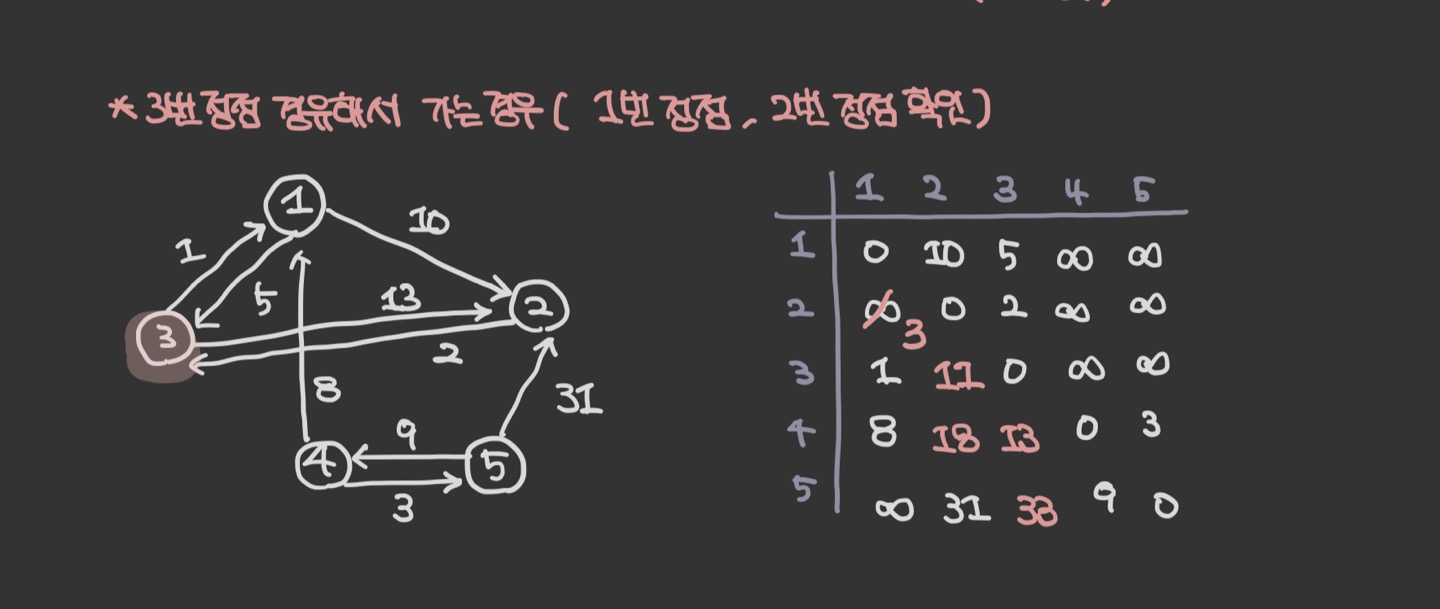 * 3번정점 경유해서 가는경우( 1번 정점, 2번 정점 확인)
1
10
1
5
13
2
3
2
8
31
9
4
5
3
1 2 3 4 5
1 0 10 5 ∞ ∞
2 ∞ 3 0 2 ∞ ∞
3 1 11 0 ∞ ∞
4 8 18 13 0 3
5 ∞ 31 33 9 0